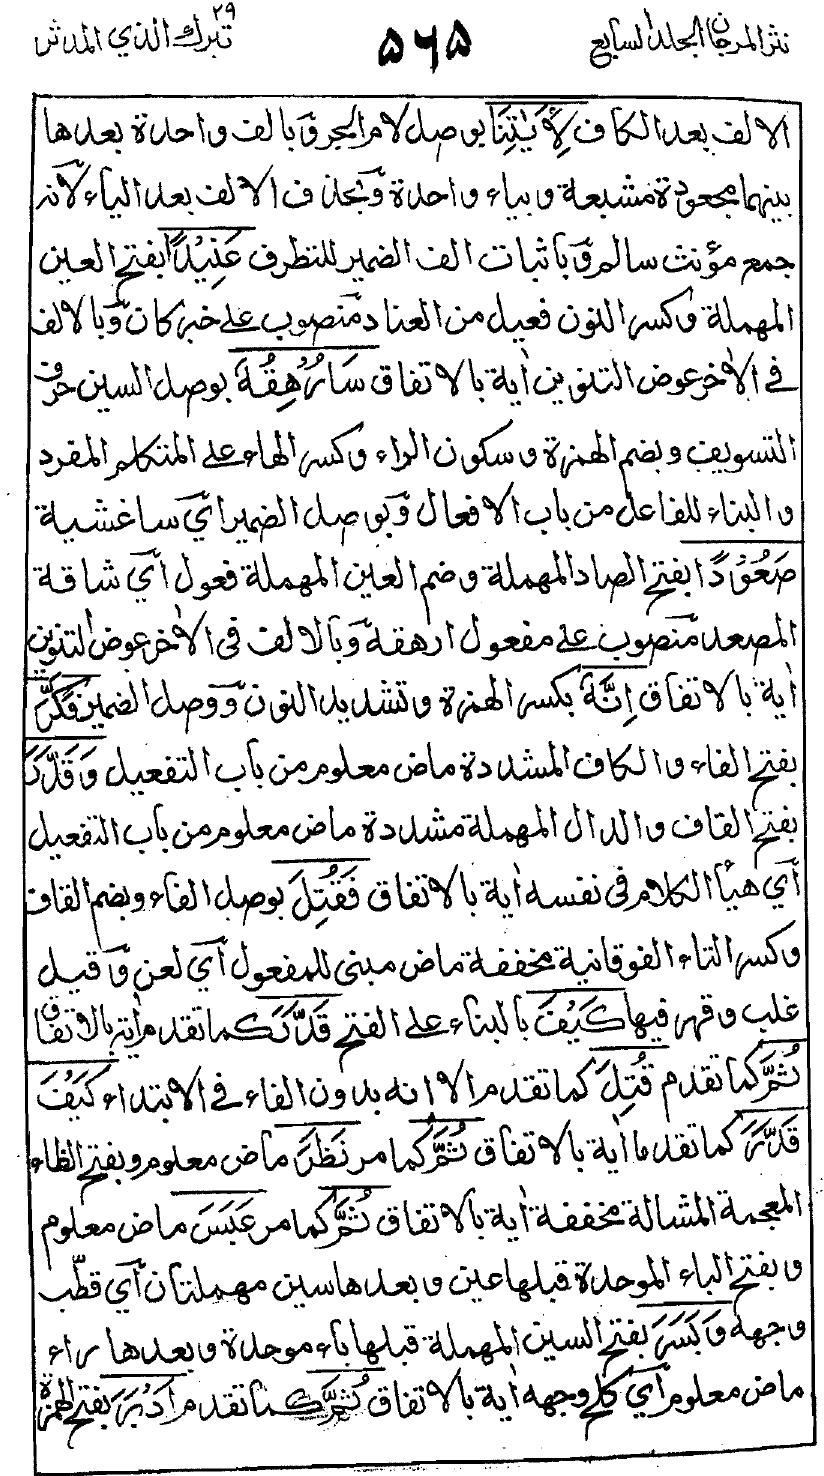 نثر المرجان المجلد السابع ۵۶۵ تبرك الذي ۲۹ المدثر
الالف بعد الكاف لِأٰيٰتِنَا بوصل لام الجر وَ بالف واحدة بعدها
بينهما مجعودة مشبعة وبياء واحدة وَّبحذف الالف بعد الياء لانه
جمع مؤنث سالم وَ باثبات الف الضمير للتطرف عَنِيْدًا بفتح العين
المهملة وكسر النون فعيل من العناد منصوب على خبر كان وَّبالالف
في الاٰخر عوض التنوين اٰية بالاتفاق سَاُرْهِقُهٗ بوصل السين حرف
التسويف وبضم الهمزة وسكون الراء وكسر الهاء على المتكلم المفرد
والبناء للفاعل من باب الافعال وَبوصل الضمير اَي ساغشية
صَعُوْدًا بفتح الصاد المهملة وضم العين المهملة فعول اَي شاقة
المصعد منصوب على مفعول ارهقه وَبالالف في الاٰخر عوض التنوين
اٰية بالاتفاق اِنَّهٗ بكسر الهمزة وتشديد النون وَوصل الضمير فَكَّرَ
بفتح الفاء والكاف المشددة ماض معلوم من باب التفعيل وَقَدَّرَ
بفتح القاف والدال المهملة مشددة ماض معلوم من باب التفعيل
اَي هيأ الكلام في نفسه اٰية بالاتفاق فَقُتِلَ بوصل الفاء وبضم القاف
وكسر التاء الفوقانية مخففة ماض مبني للمفعول اَي لعن وَقيل
غلب وقهر فيها كَيْفَ بالبناء على الفتح قَدَّرَ كما تقدم اٰية بالاتفاق
ثُمَّ كما تقدم قُتِلَ كما تقدم الا انه بدون الفاء في الابتداء كَيْفَ
قَدَّرَ كما تقدم اٰية بالاتفاق ثُمَّ كما مر نَظَرَ ماض معلوم وبفتح الظاء
المعجمة المشالة مخففة اٰية بالاتفاق ثُمَّ كما مر عَبَسَ ماض معلوم
وبفتح الباء الموحدة قبلها عين وبعدها سين مهملتان اَي قطّب
وجهه وَبَسَرَ بفتح السين المهملة قبلها باء موحدة وبعدها راء
ماض معلوم اَي كلح وجهه اٰية بالاتفاق ثُمَّ كما تقدم اَدْبَرَ بفتح الهمزة